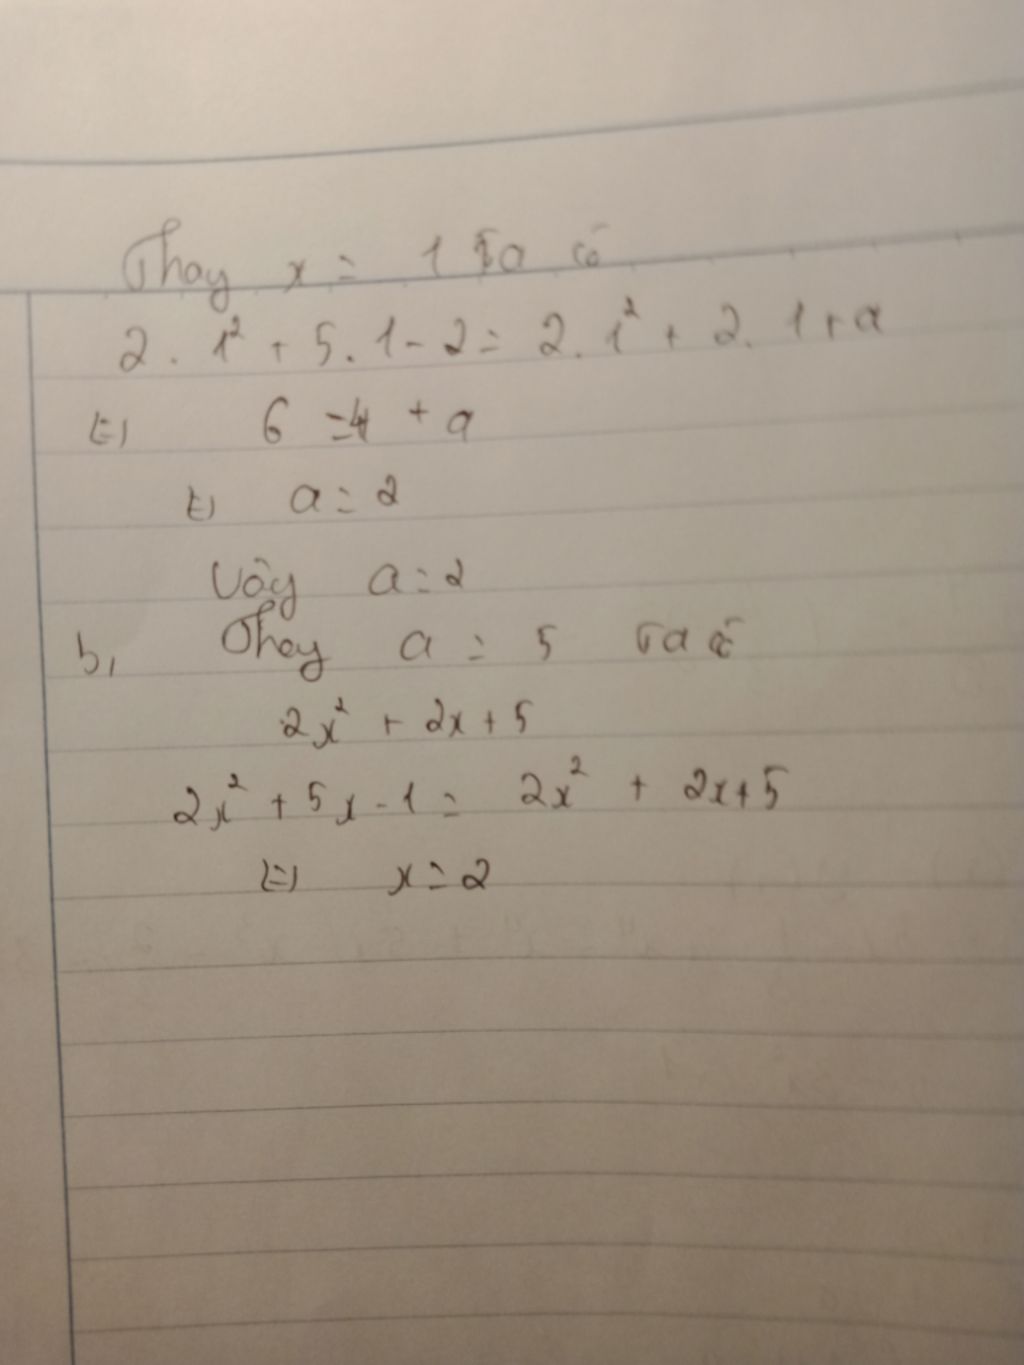 Thay x = 1 ta có
2 . 1² + 5 . 1 - 2 = 2 . 1² + 2 . 1 + a
⇔ 6 = 4 + a
⇔ a = 2
Vậy a = 2
b, Thay a = 5 ta có
2x² + 2x + 5
2x² + 5x - 1 = 2x² + 2x + 5
⇔ x = 2